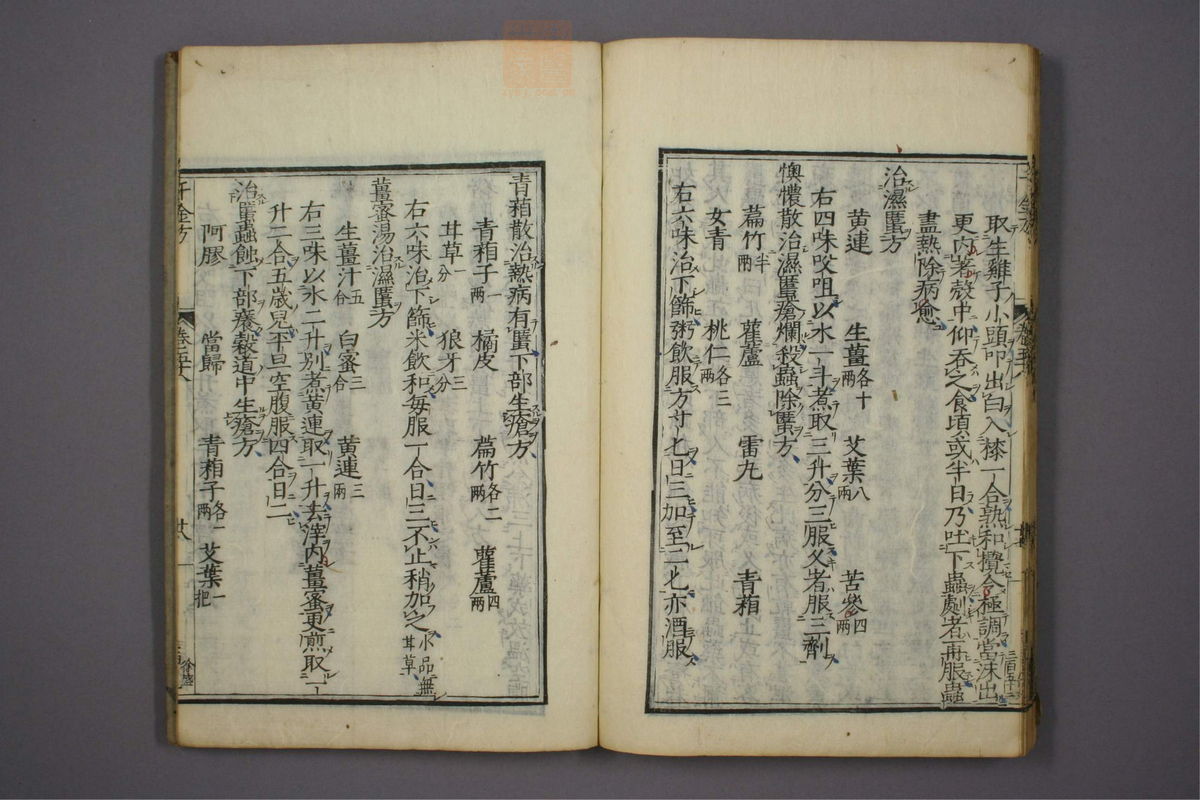 取生雞子小頭叩出白入𣾰一合熟和攪令極調當沫出
更内著殻中仰吞之食頃或半日乃吐下蟲劇者再服蟲
盡熱除病愈
治濕䘌方
黄連 生薑各十兩 艾葉八兩 苦參四兩
右四味㕮咀以水一斗煮取三升分三服久者服三劑
懊憹散治濕䘌瘡爛殺蟲除䘌方
萹竹半兩 雚蘆 雷丸 青葙
女青 桃仁各三兩
右六味治下篩粥飲服方寸匕日三加至二匕亦酒服
青葙散治熱病有䘌下部生瘡方
青葙子一兩 橘皮 萹竹各二兩 雚蘆四兩
甘草一分 狼牙三分
右六味治下篩米飲和毎服一合日三不止稍加之小品無甘草
薑蜜湯治濕䘌方
生薑汁五合 白蜜三合 黄連三兩
右三味以水二升別煮黄連取一升去滓内薑蜜更煎取一
升二合五歳兒平旦空腹服四合日二
治䘌蟲蝕下部癢穀道中生瘡方
阿膠 當歸 青葙子各一兩 艾葉一把
千金方
卷第十八
廿八